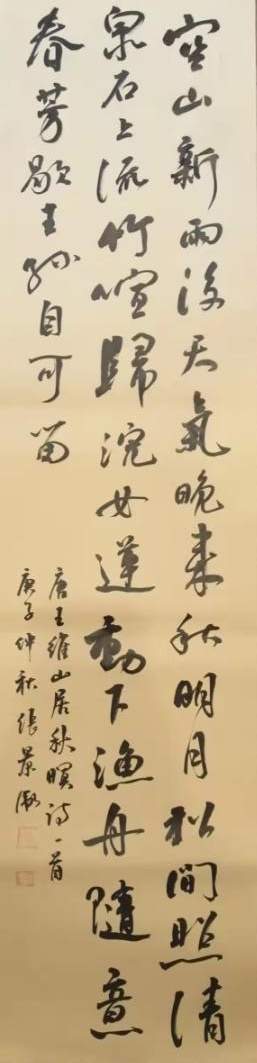 空山新雨後天氣晚來秋明月松間照清
泉石上流竹喧歸浣女蓮動下漁舟隨意
春芳歇王孫自可留
唐王維山居秋暝詩一首
庚子仲秋張景